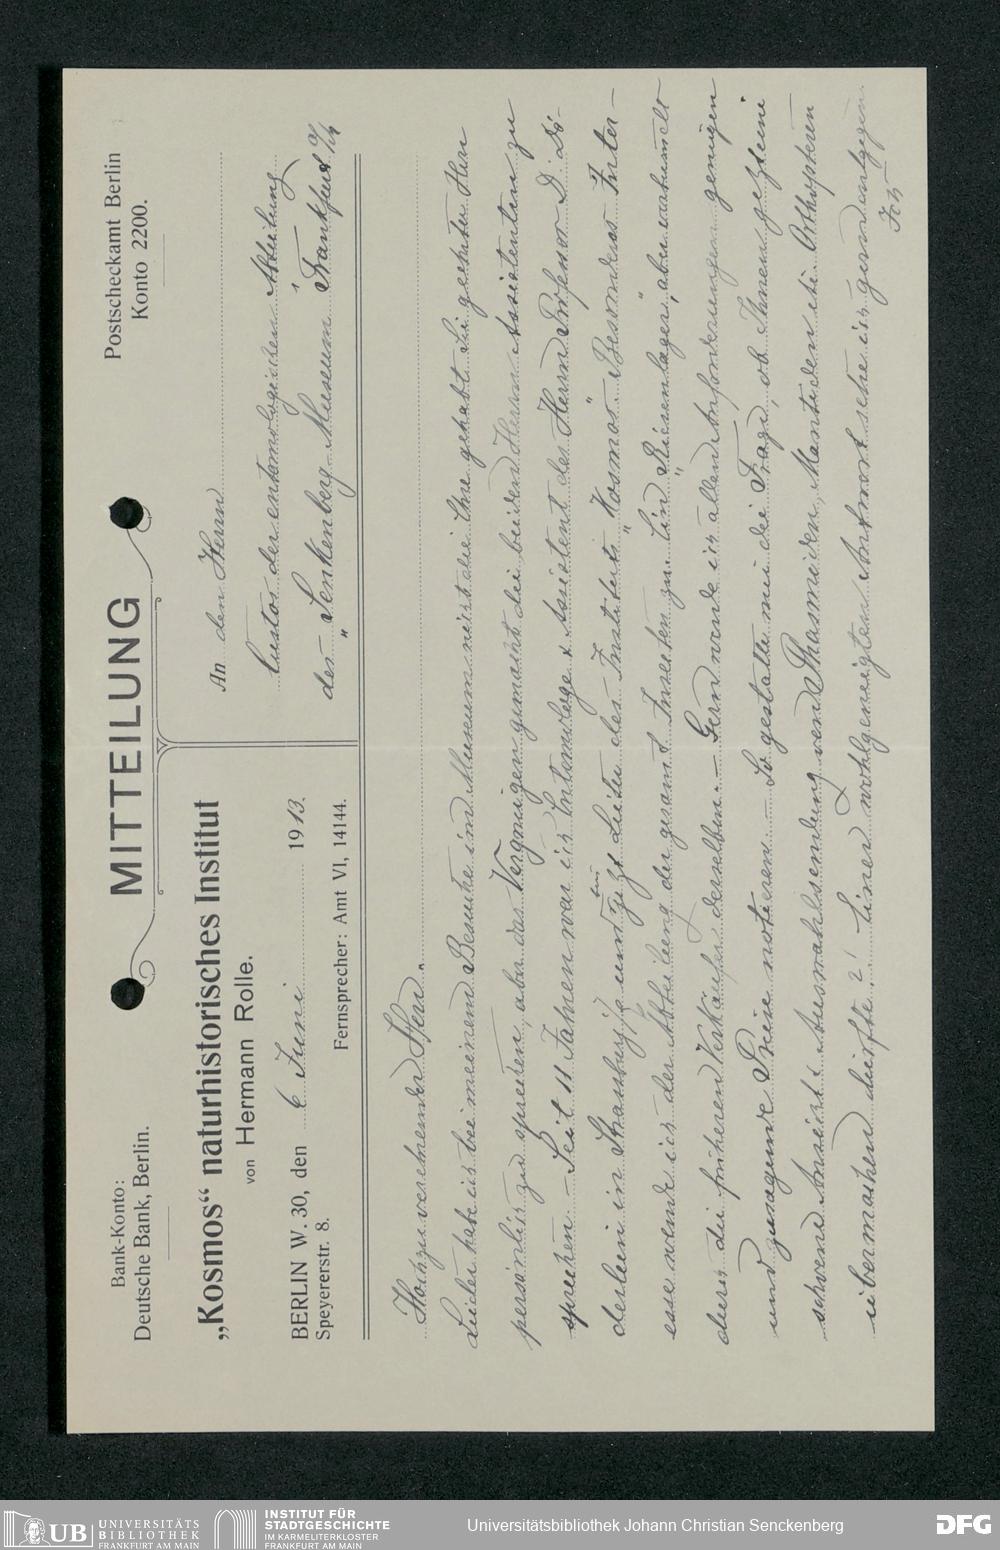 Bank-Konto:
Deutsche Bank, Berlin.
MITTEILUNG
Postscheckamt Berlin
Konto 2200.
„Kosmos“ naturhistorisches Institut
von Hermann Rolle.
BERLIN W. 30, den 6 Juni 1913.
Speyererstr. 8.
Fernsprecher: Amt VI, 14144.
An den Herrn
Custos der entomologischen Abteilung
des „Senkenberg“ Museum Frankfurt a/M
Hochzuverehrender Herr.
Leider habe ich bei meinem Besuche im Museum nicht die Ehre gehabt Sie geehrter Herr
persönlich zu sprechen, aber das Vergnügen gemacht die beiden Herren Assistenten zu
sprechen. – Seit 11 Jahren war ich Entomologe & Assistent des Herrn Professor D. Dö-
derlein in Strassburg i/e und jetzt Leiter des Instituts „Kosmos“ Besonderes Inter-
esse wende ich der Abteilung der gesamt Insecten zu. Ein „Riesenlager“, aber verbummelt
durch die früheren Verkäufer derselben. – Gern werde ich allen Anforderungen genügen
und zusagende Preise notieren. – So gestatte mir die Frage, ob Ihnen gegebene
Ansicht & Auswahlsendung von Phasmiden, Mantiden etc. Orthopteren
übermachen dürfte? Einer wohlgeneigten Antwort sehe ich gern entgegen.